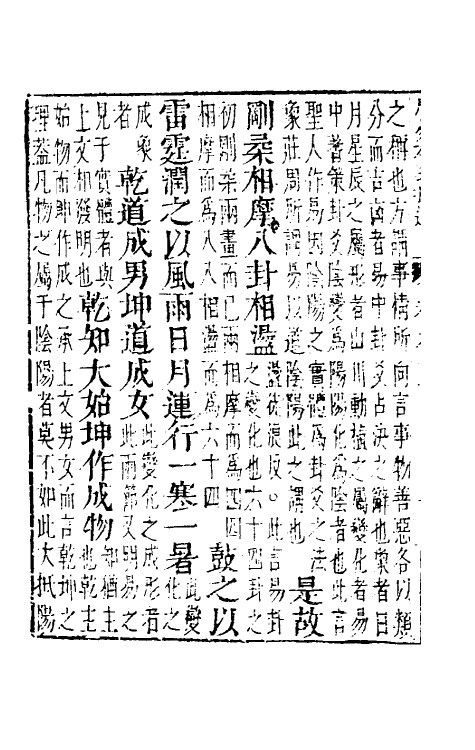 之稱也方謂事情所向言事物善惡各以類
分而言吉凶者易中卦爻占決之辭也象者日
月星辰之屬形者山川動植之屬變化者易
中蓍策卦爻陰變為陽陽化為陰者也此言
聖人作易因陰陽之實體為卦爻之法
象莊周所謂易以道陰陽此之謂也 是故
剛柔相摩八卦相盪 盪徒浪反○此言易卦
之變化也六十四卦之
初剛柔兩畫而已兩相摩而為四四
相摩而為八八相盪而為六十四 鼓之以
雷霆潤之以風雨日月運行一寒一暑 此變
化之
成象
者 乾道成男坤道成女 此變化之成形者
此兩節又明易之
見于實體者與
上文相發明也 乾知大始坤作成物 知猶主
也乾主
始物而坤作成之承上文男女而言乾坤之
理蓋凡物之屬乎陰陽者莫不如此大抵陽